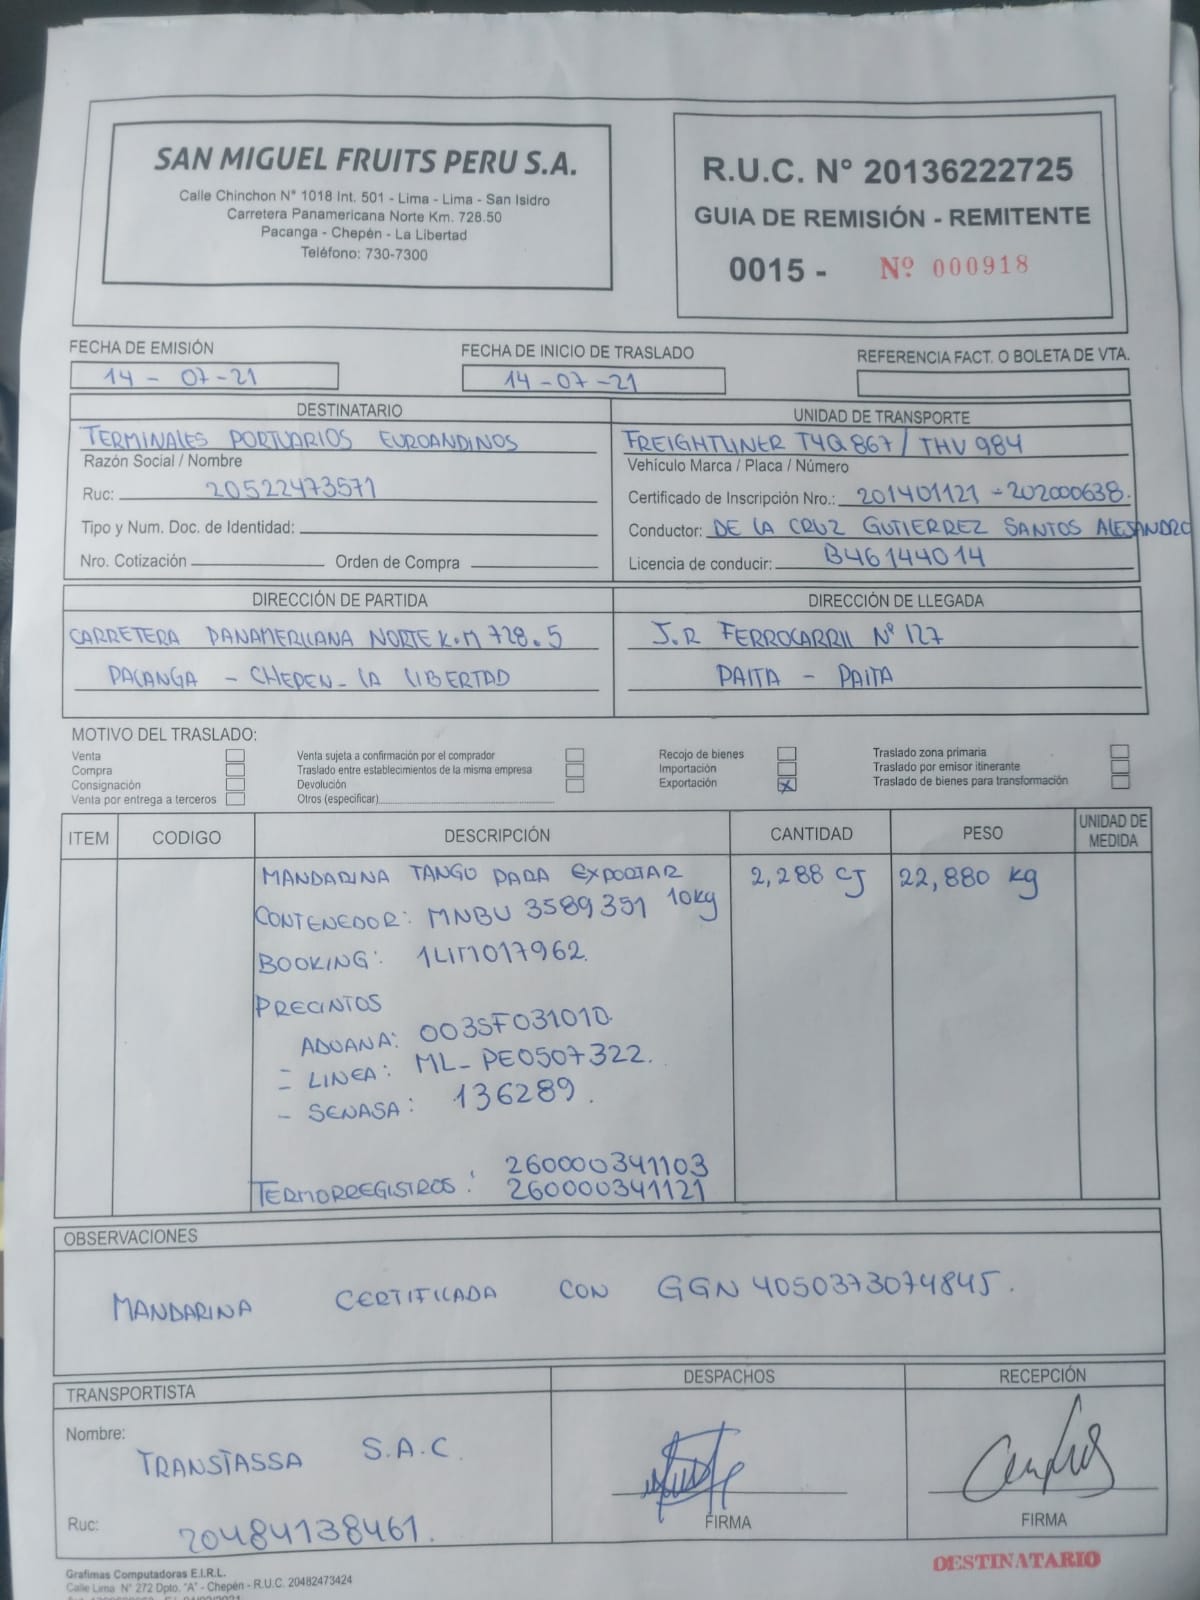 SAN MIGUEL FRUITS PERU S.A.
Calle Chinchon N° 1018 Int. 501 - Lima - Lima - San Isidro
Carretera Panamericana Norte Km. 728.50
Pacanga - Chepén - La Libertad
Teléfono: 730-7300
R.U.C. N° 20136222725
GUIA DE REMISIÓN - REMITENTE
0015 - Nº 000918
FECHA DE EMISIÓN
14 - 07-21
FECHA DE INICIO DE TRASLADO
14-07-21
REFERENCIA FACT. O BOLETA DE VTA.
DESTINATARIO
TERMINALES PORTUARIOS EUROANDINOS
Razón Social / Nombre
Ruc: 20522473571
Tipo y Num. Doc. de Identidad:
Nro. Cotización Orden de Compra
UNIDAD DE TRANSPORTE
FREIGHTLINER T4Q867/ THV 984
Vehículo Marca / Placa / Número
Certificado de Inscripción Nro.: 201401121 - 202000638.
Conductor: DE LA CRUZ GUTIERREZ SANTOS ALESANDRO
Licencia de conducir: B46144014
DIRECCIÓN DE PARTIDA
CARRETERA PANAMERICANA NORTE K.M 728.5
PACANGA - CHEPEN - LA LIBERTAD
DIRECCIÓN DE LLEGADA
J.R FERROCARRIL Nº 127
PAITA - PAITA
MOTIVO DEL TRASLADO:
Venta
Compra
Consignación
Venta por entrega a terceros
Venta sujeta a confirmación por el comprador
Traslado entre establecimientos de la misma empresa
Devolución
Otros (especificar)
Recojo de bienes
Importación
Exportación X
Traslado zona primaria
Traslado por emisor itinerante
Traslado de bienes para transformación
ITEM CODIGO DESCRIPCIÓN CANTIDAD PESO UNIDAD DE MEDIDA
MANDARINA TANGO PARA EXPORTAR 2,288 CJ 22,880 kg
10kg
CONTENEDOR: MNBU 3589351
BOOKING: 1LIM017962.
PRECINTOS
ADUANA: 003SF031010.
- LINEA: ML-PE0507322.
- SENASA: 136289.
260000341103
TERMORREGISTROS: 260000341121
OBSERVACIONES
MANDARINA CERTIFICADA CON GGN 4050373074845.
TRANSPORTISTA
Nombre:
TRANSTASSA S.A.C.
Ruc: 20484138461.
DESPACHOS
FIRMA
RECEPCIÓN
FIRMA
DESTINATARIO
Grafimas Computadoras E.I.R.L.
Calle Lima N° 272 Dpto. "A" - Chepén - R.U.C. 20482473424